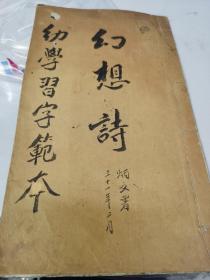 幻想詩
幼學習字範本
炳文署
三十一年二月